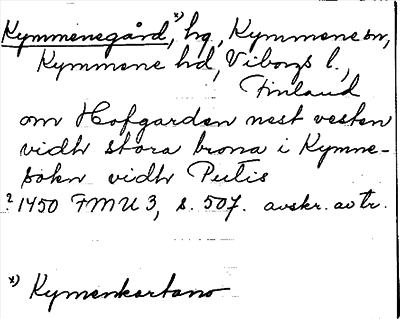 Kymmenegård,*) hg, Kymmene sn,
Kymmene hd, Viborgs l.,
Finland
om Hofgarden nest vesten
vidh stora brona i Kymne-
sokn vidh Putis
? 1450 FMU 3, s. 507. avskr. av tr.
*) Kymenkartano